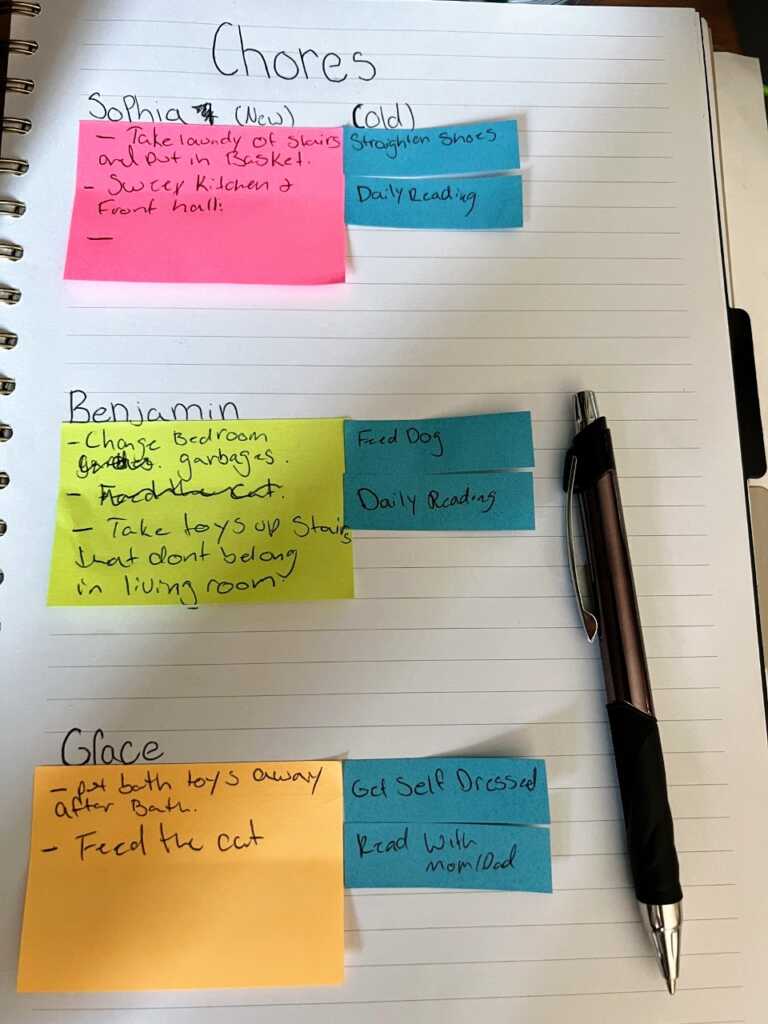 Chores
Sophia (New) (old)
- Take laundy of stairs
and put in Basket.
- Sweep Kitchen &
Front hall:
-
Straighten Shoes
Daily Reading
Benjamin
- Change Bedroom
garbages.
- Feed the cat.
- Take toys up Stairs
that dont belong
in living room.
Feed Dog
Daily Reading
Grace
- put bath toys away
after Bath.
- Feed the cat
Get Self Dressed
Read With
Mom/Dad